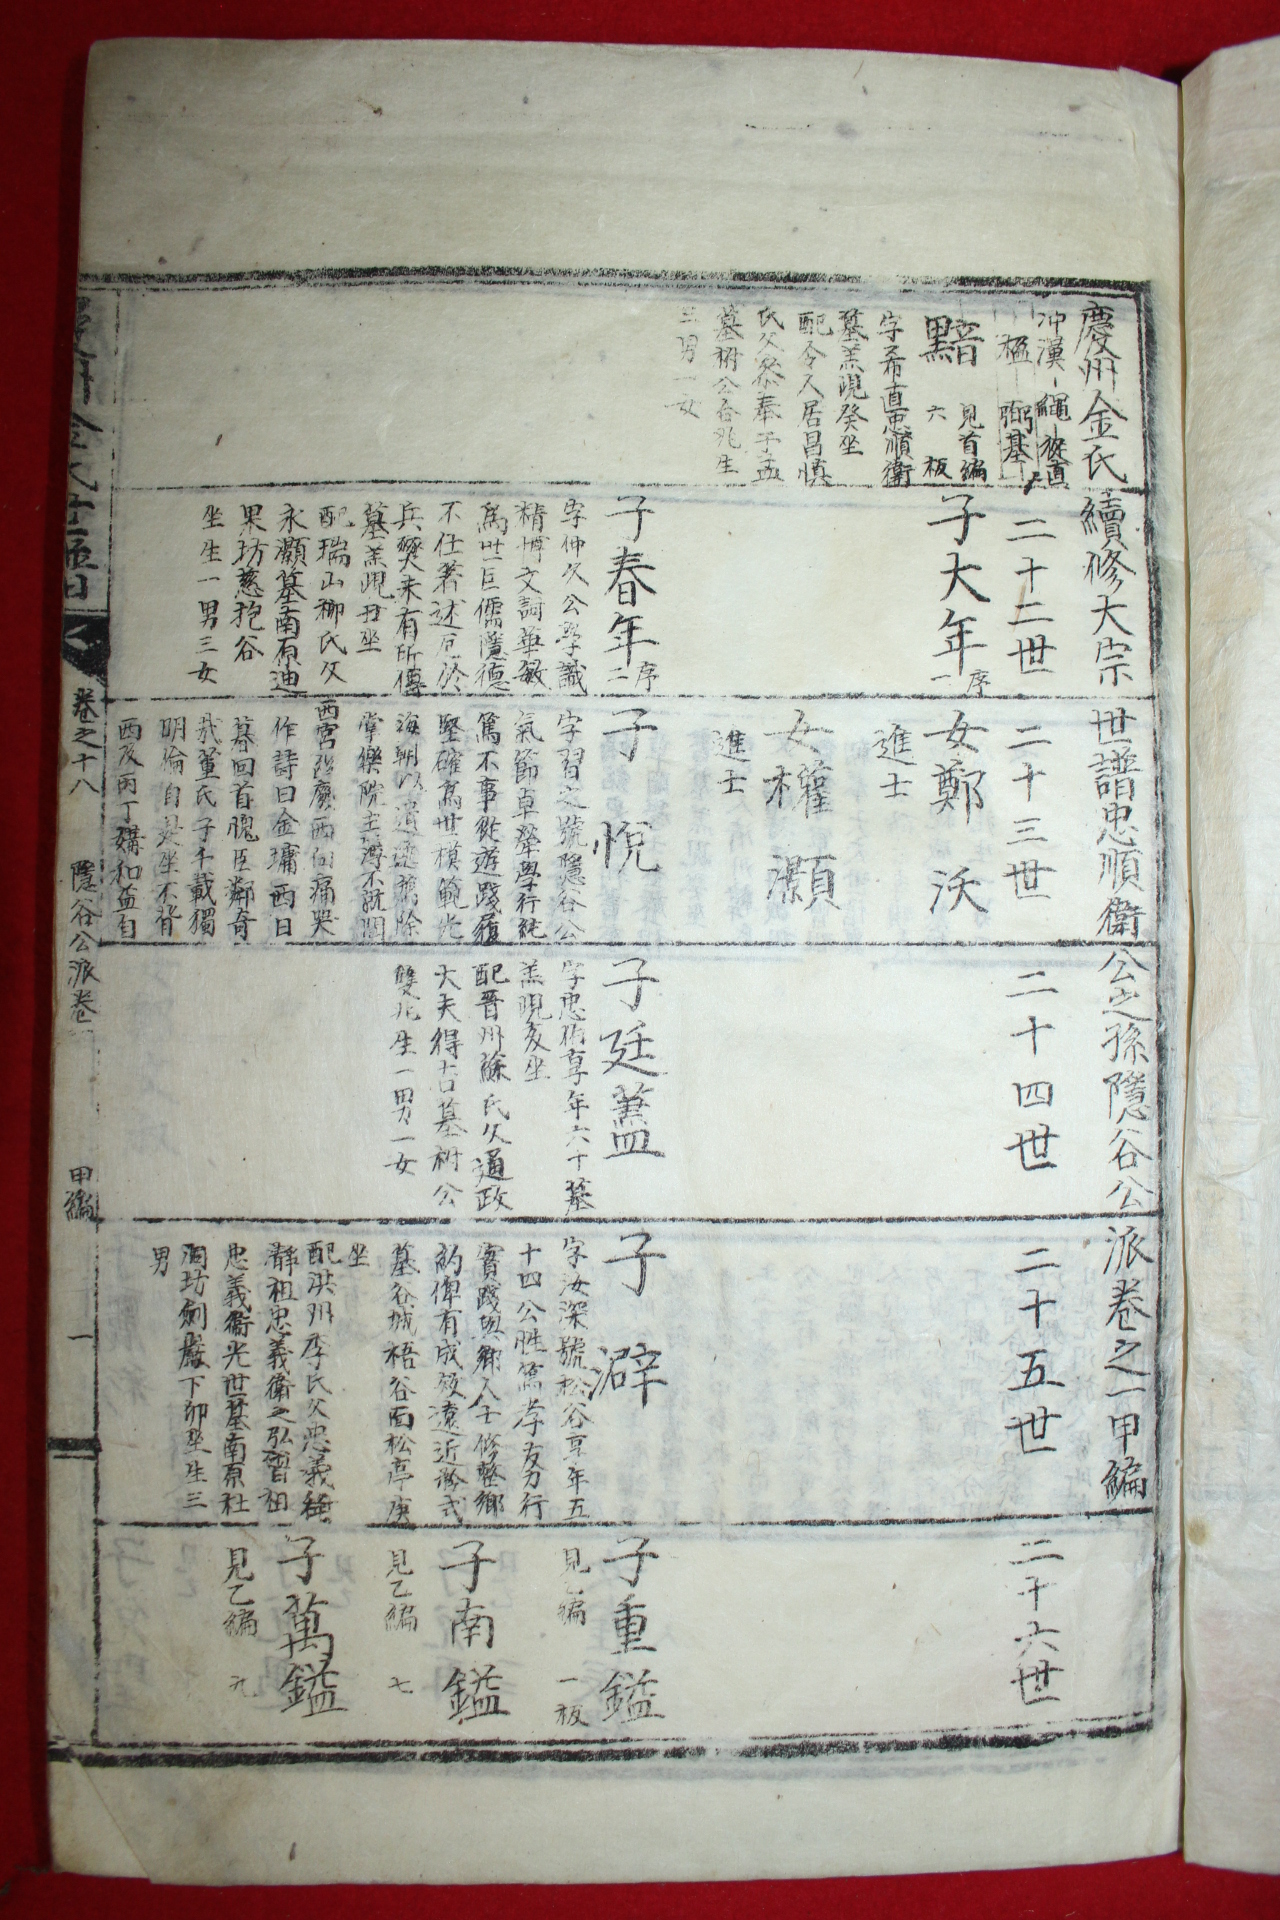 慶州金氏續修大宗世譜忠順衛公之孫隱谷公派卷之一甲編
沖漢 繩 從直
楹 弼基
黯 見首編
六板
字希直忠順衛
墓羔峴癸坐
配令人居昌愼
氏父參奉子孟
墓祔公合兆生
三男一女
二十二世
子大年 序一
子春年 序二
字仲久公學識
精博文詞華敏
爲世巨儒隱德
不仕著述厄於
兵燹未有所傳
墓羔峴丑坐
配瑞山柳氏父
永灝墓南原迪
果坊慈抱谷
坐生一男三女
二十三世
女鄭沃
進士
女權灝
進士
子悅
字習之號隱谷公
氣節卓犖學行純
篤不事從遊踐履
堅確爲世模範光
海朝以遺逸薦除
掌樂院主簿不就聞
西宮幽廢西向痛哭
作詩曰金墉西日
暮回首愧臣鄰奇
哉董氏子千載獨
明倫自是坐不背
西及丙丁媾和益自
二十四世
子廷藎
字忠伯享年六十墓
羔峴亥坐
配晉州蘇氏父通政
大夫得吉墓祔公
雙兆生一男一女
二十五世
子澼
字汝深號松谷享年五
十四公性篤孝友力行
實踐與鄉人士修整鄉
約俾有成效遠近矜式
墓谷城梧谷面松亭庚
坐
配洪州李氏父忠義衛
瀞祖忠義衛之弘曾祖
忠義衛光世墓南原社
洞坊劍巖下卯坐生三
男
二十六世
子重鎰
見乙編
一板
子南鎰
見乙編
七
子萬鎰
見乙編
九
慶州金氏世譜
卷之十八
隱谷公派卷一
甲編
一